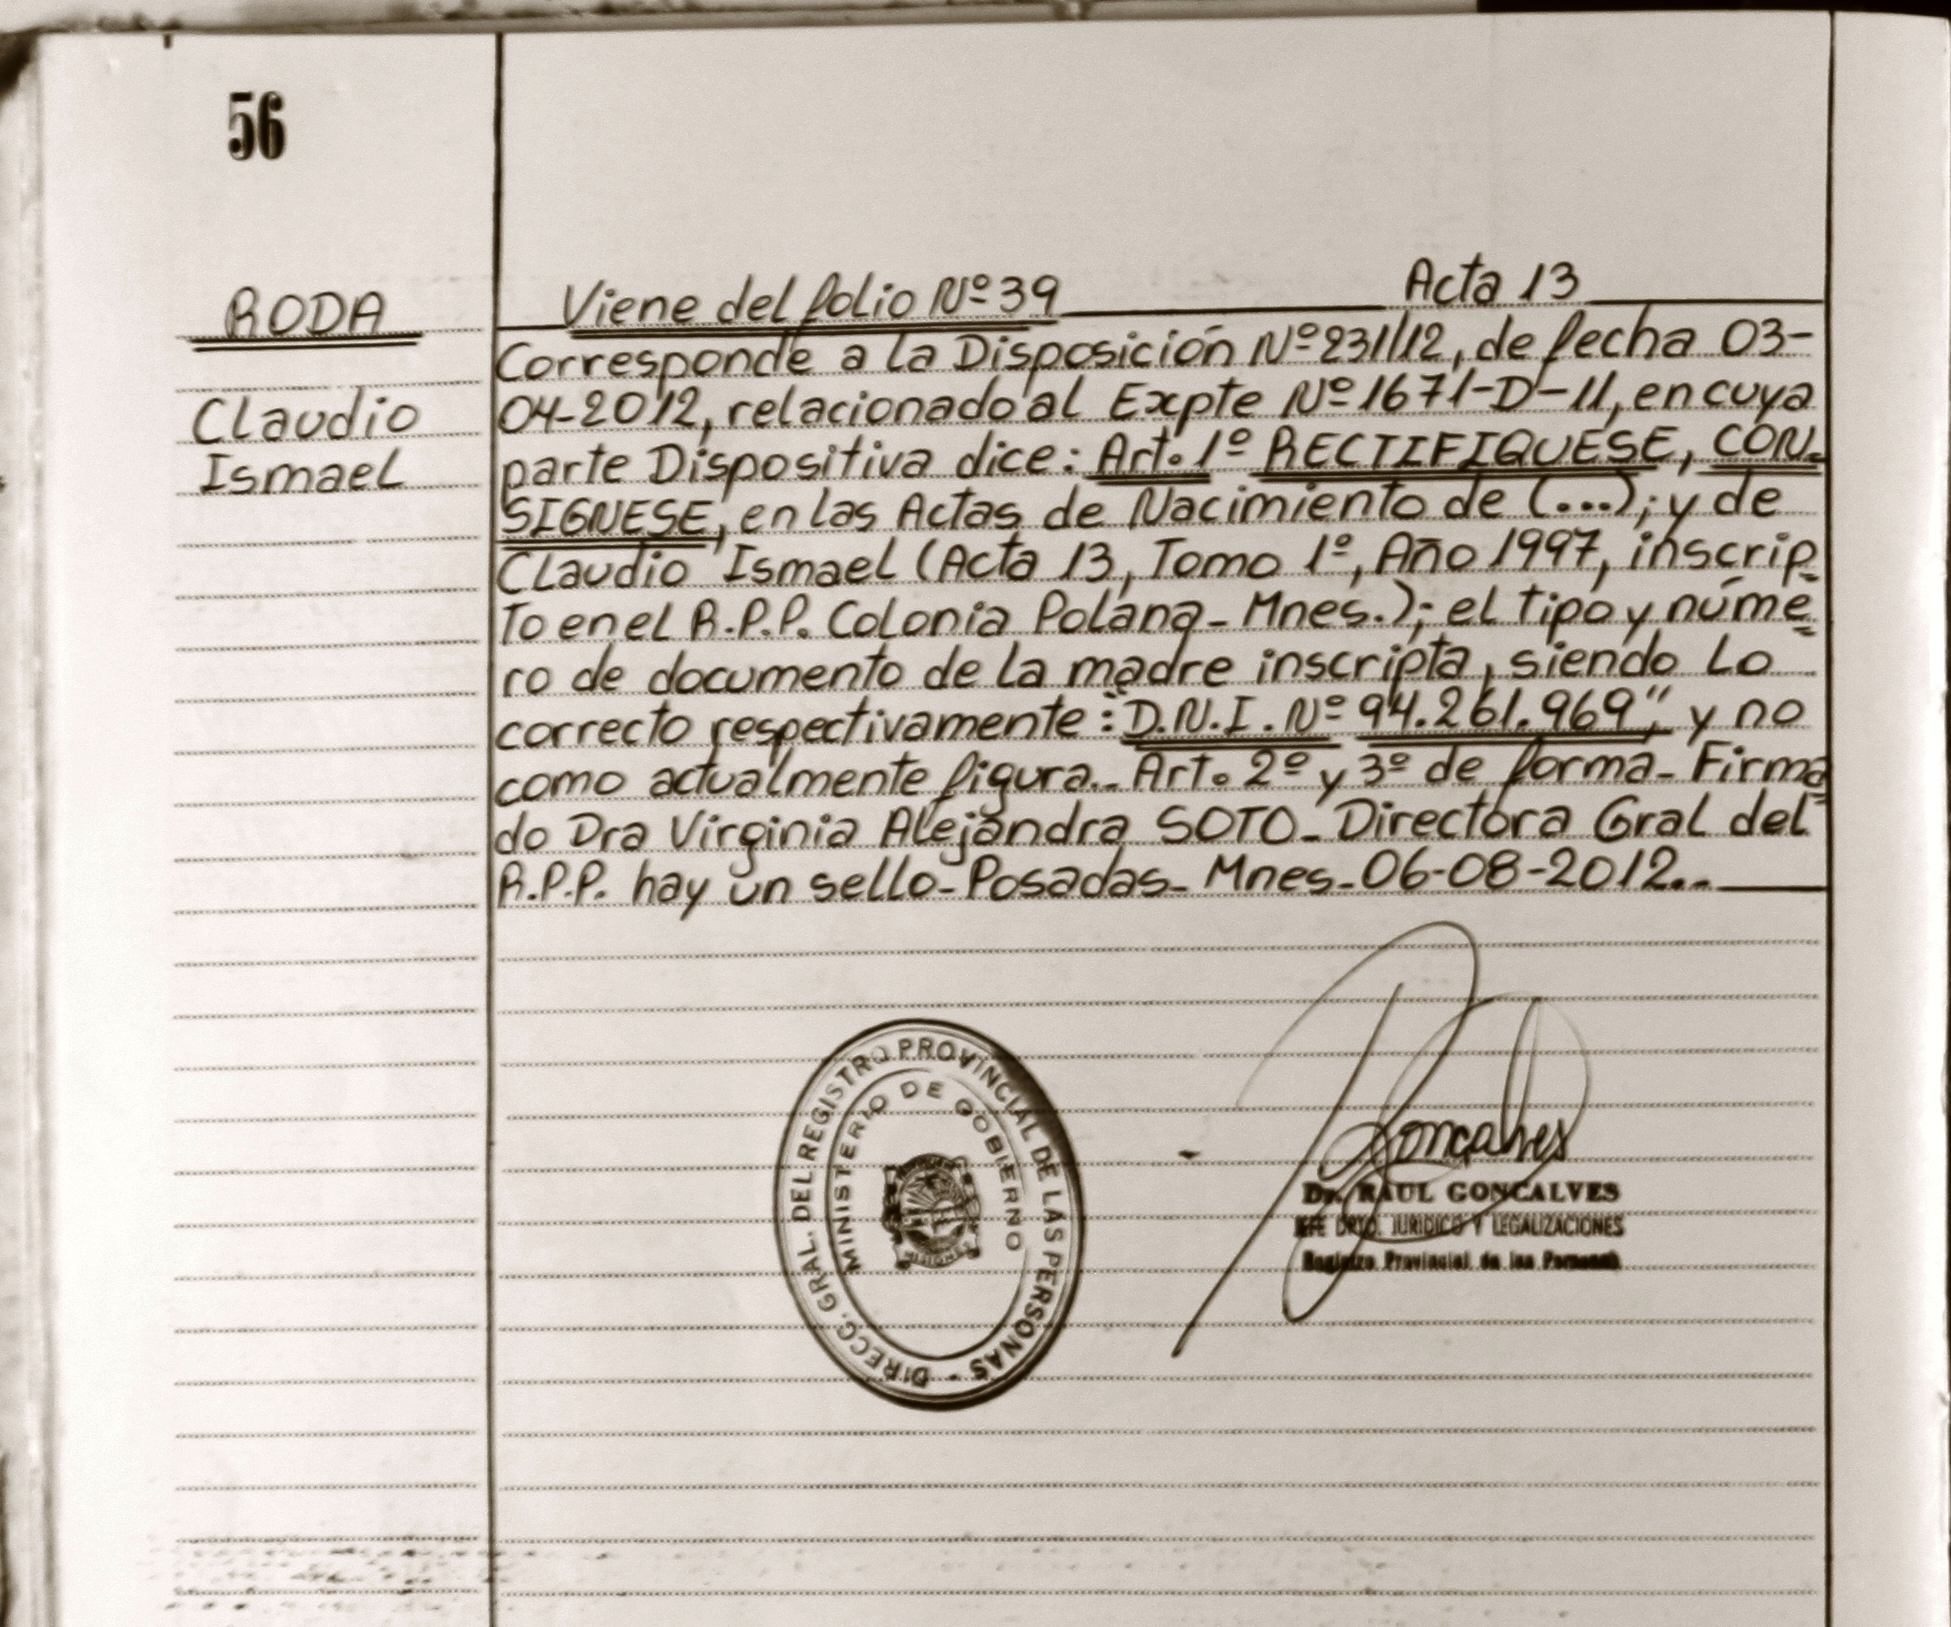 56
RODA
Claudio
Ismael
Viene del folio Nº 39 Acta 13
Corresponde a la Disposición Nº 231/12, de fecha 03-
04-2012, relacionado al Expte Nº 1671-D-11, en cuya
parte Dispositiva dice: Art. 1º RECTIFIQUESE, CON-
SIGNESE, en las Actas de Nacimiento de (...); y de
Claudio Ismael (Acta 13, Tomo 1º, Año 1997, inscrip-
to en el R.P.P. Colonia Polana - Mnes.); el tipo y núme=
ro de documento de la madre inscripta, siendo lo
correcto respectivamente: "D.N.I. Nº 94.261.969", y no
como actualmente figura.- Art. 2º y 3º de forma - Firma=
do Dra Virginia Alejandra SOTO - Directora Gral del
R.P.P. hay un sello - Posadas - Mnes - 06-08-2012.-
DIRECC. GRAL. DEL REGISTRO PROVINCIAL DE LAS PERSONAS -
MINISTERIO DE GOBIERNO
Goncalves
Dr. RAUL GONCALVES
JEFE DPTO. JURIDICO Y LEGALIZACIONES
Registro Provincial de las Personas